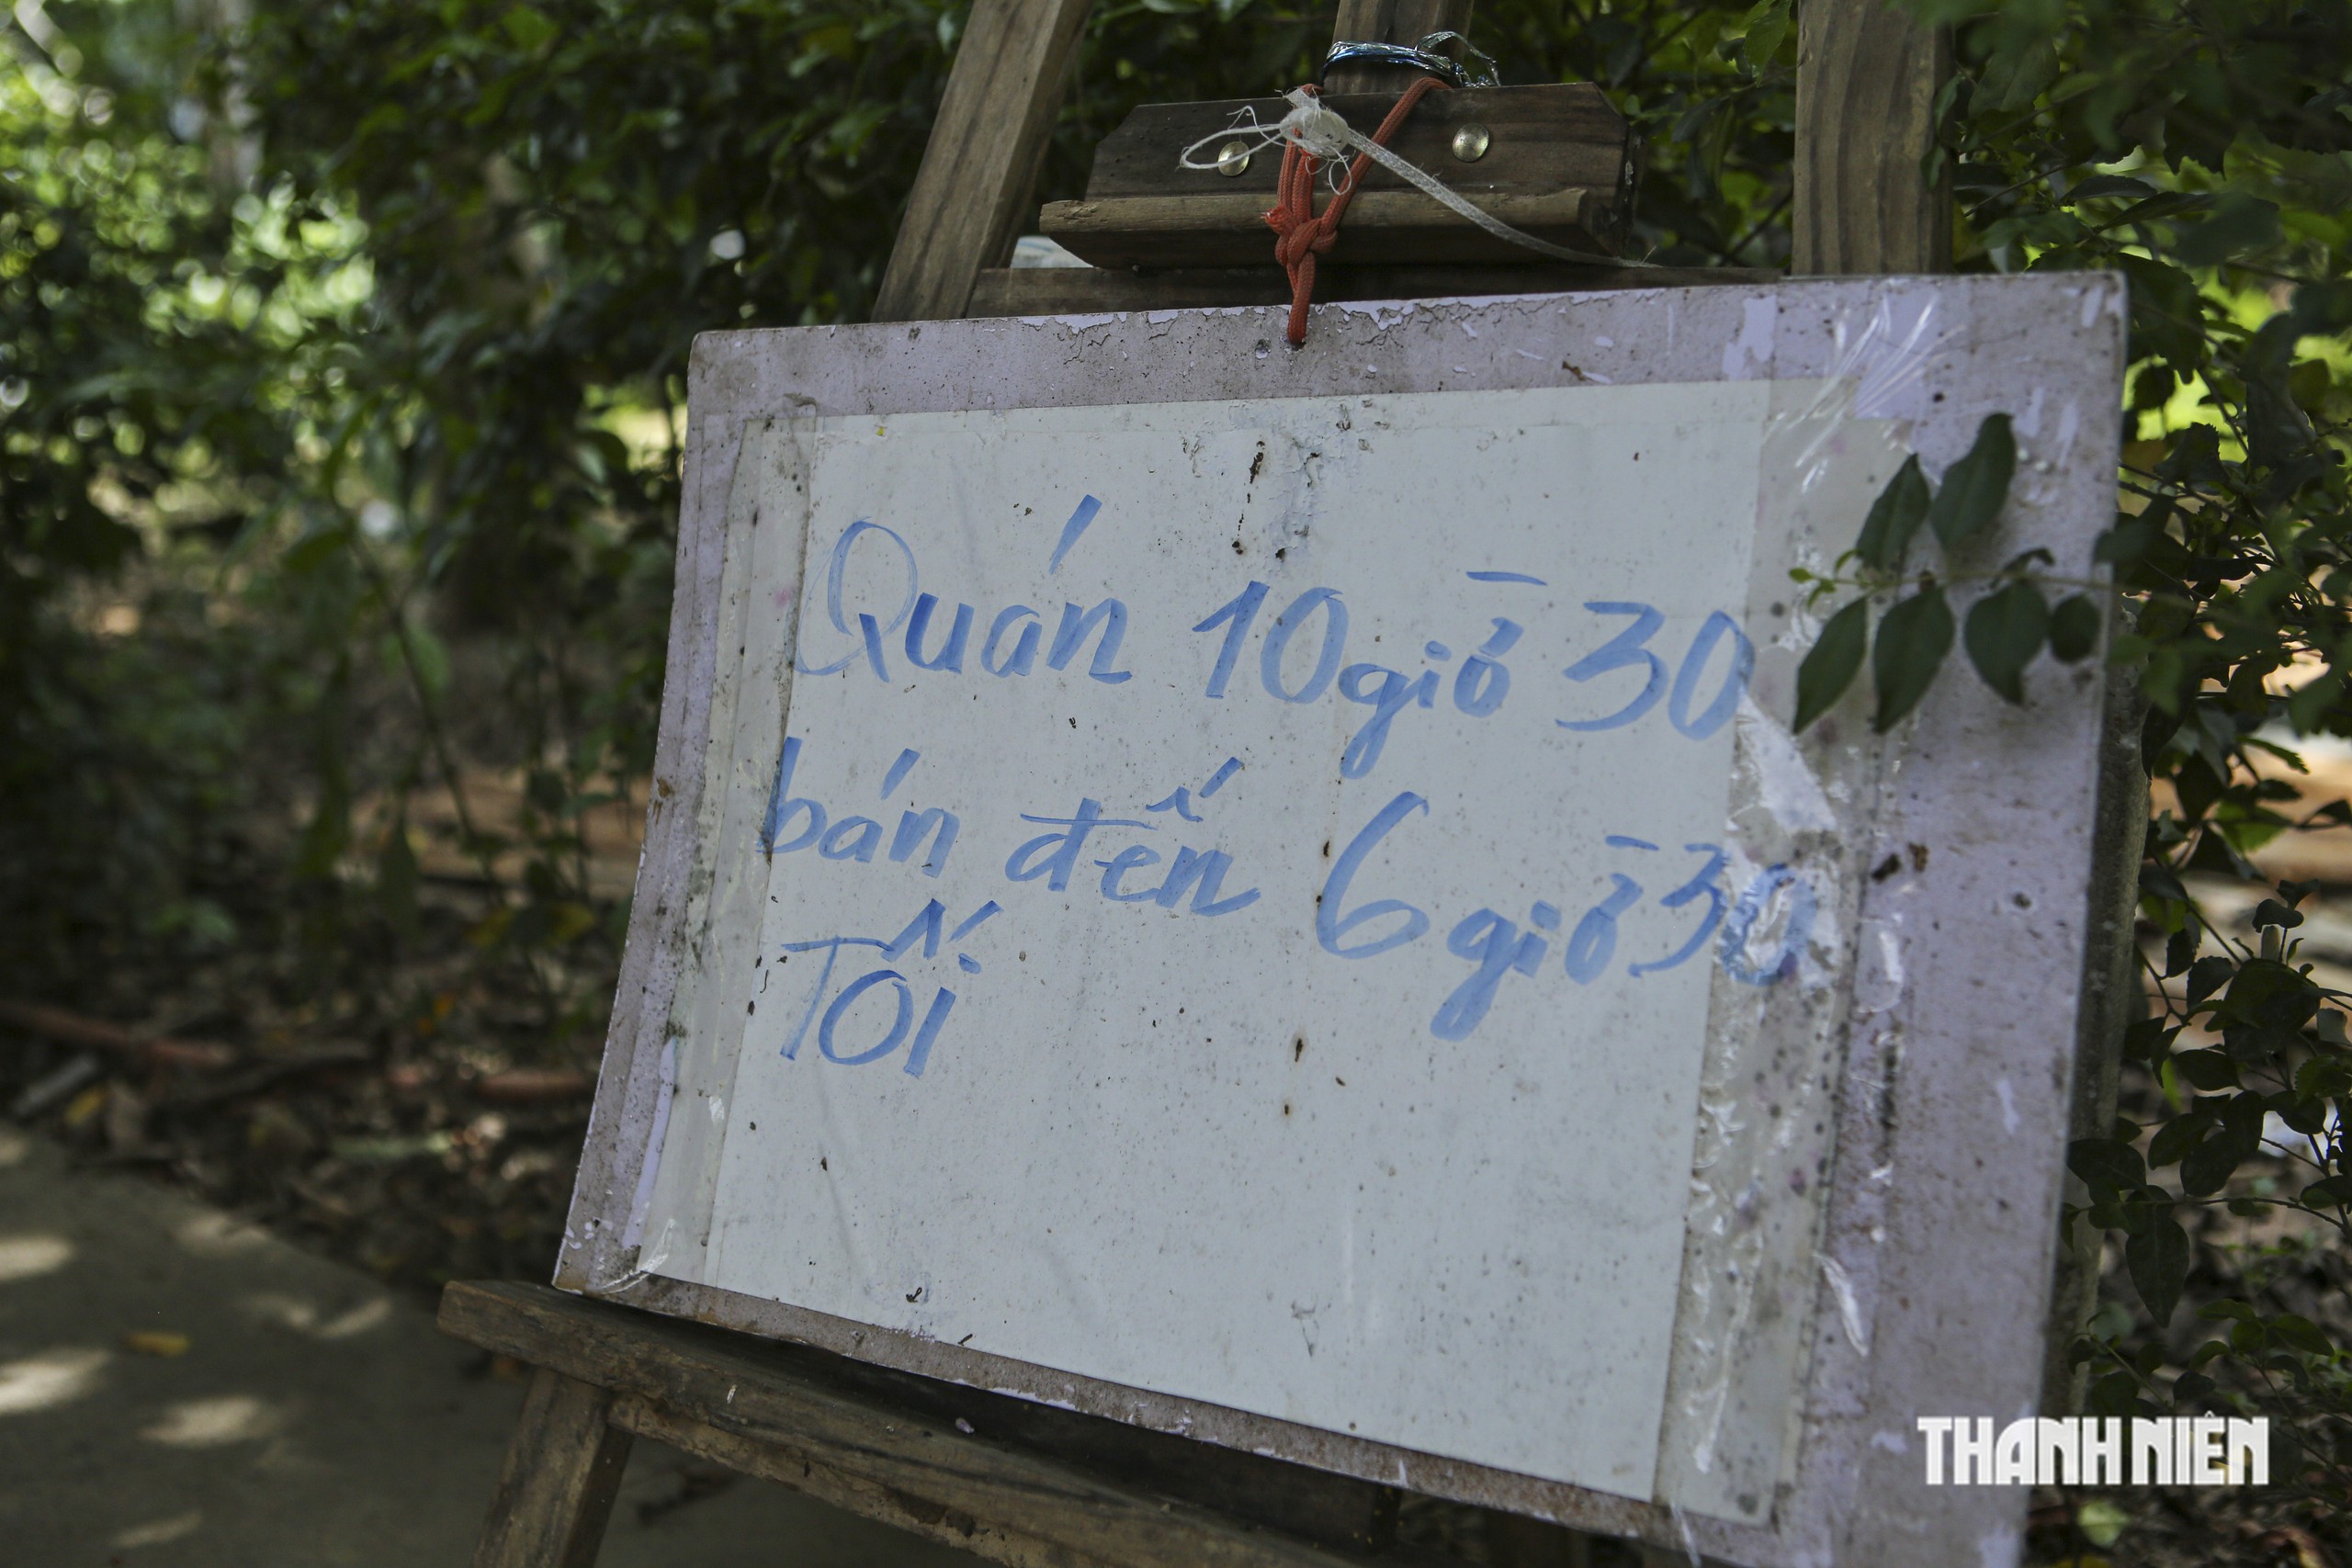 Quán 10 giờ 30
bán đến 6 giờ 30
Tối
THANH NIÊN